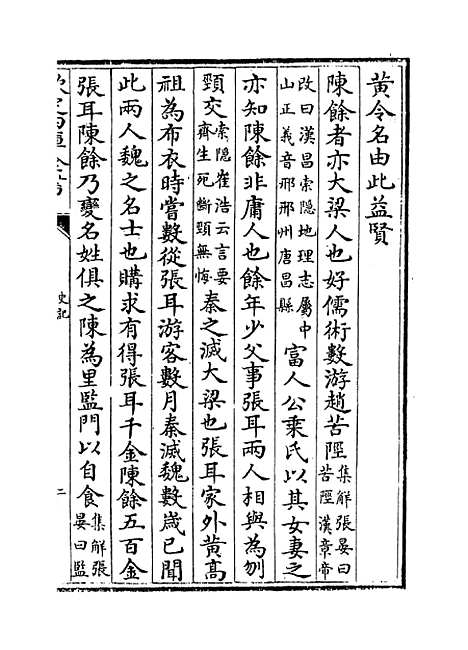 黄令名由此益賢
陳餘者亦大梁人也好儒術數游趙苦陘集解張晏曰苦陘漢章帝
改曰漢昌索隱地理志屬中山正義音邢邢州唐昌縣富人公乘氏以其女妻之
亦知陳餘非庸人也餘年少父事張耳兩人相與為刎
頸交索隱崔浩云言要齊生死斷頸無悔秦之滅大梁也張耳家外黄髙
祖為布衣時嘗數從張耳游客數月秦滅魏數嵗已聞
此兩人魏之名士也購求有得張耳千金陳餘五百金
張耳陳餘乃變名姓俱之陳為里監門以自食集解張晏曰監
史記
二